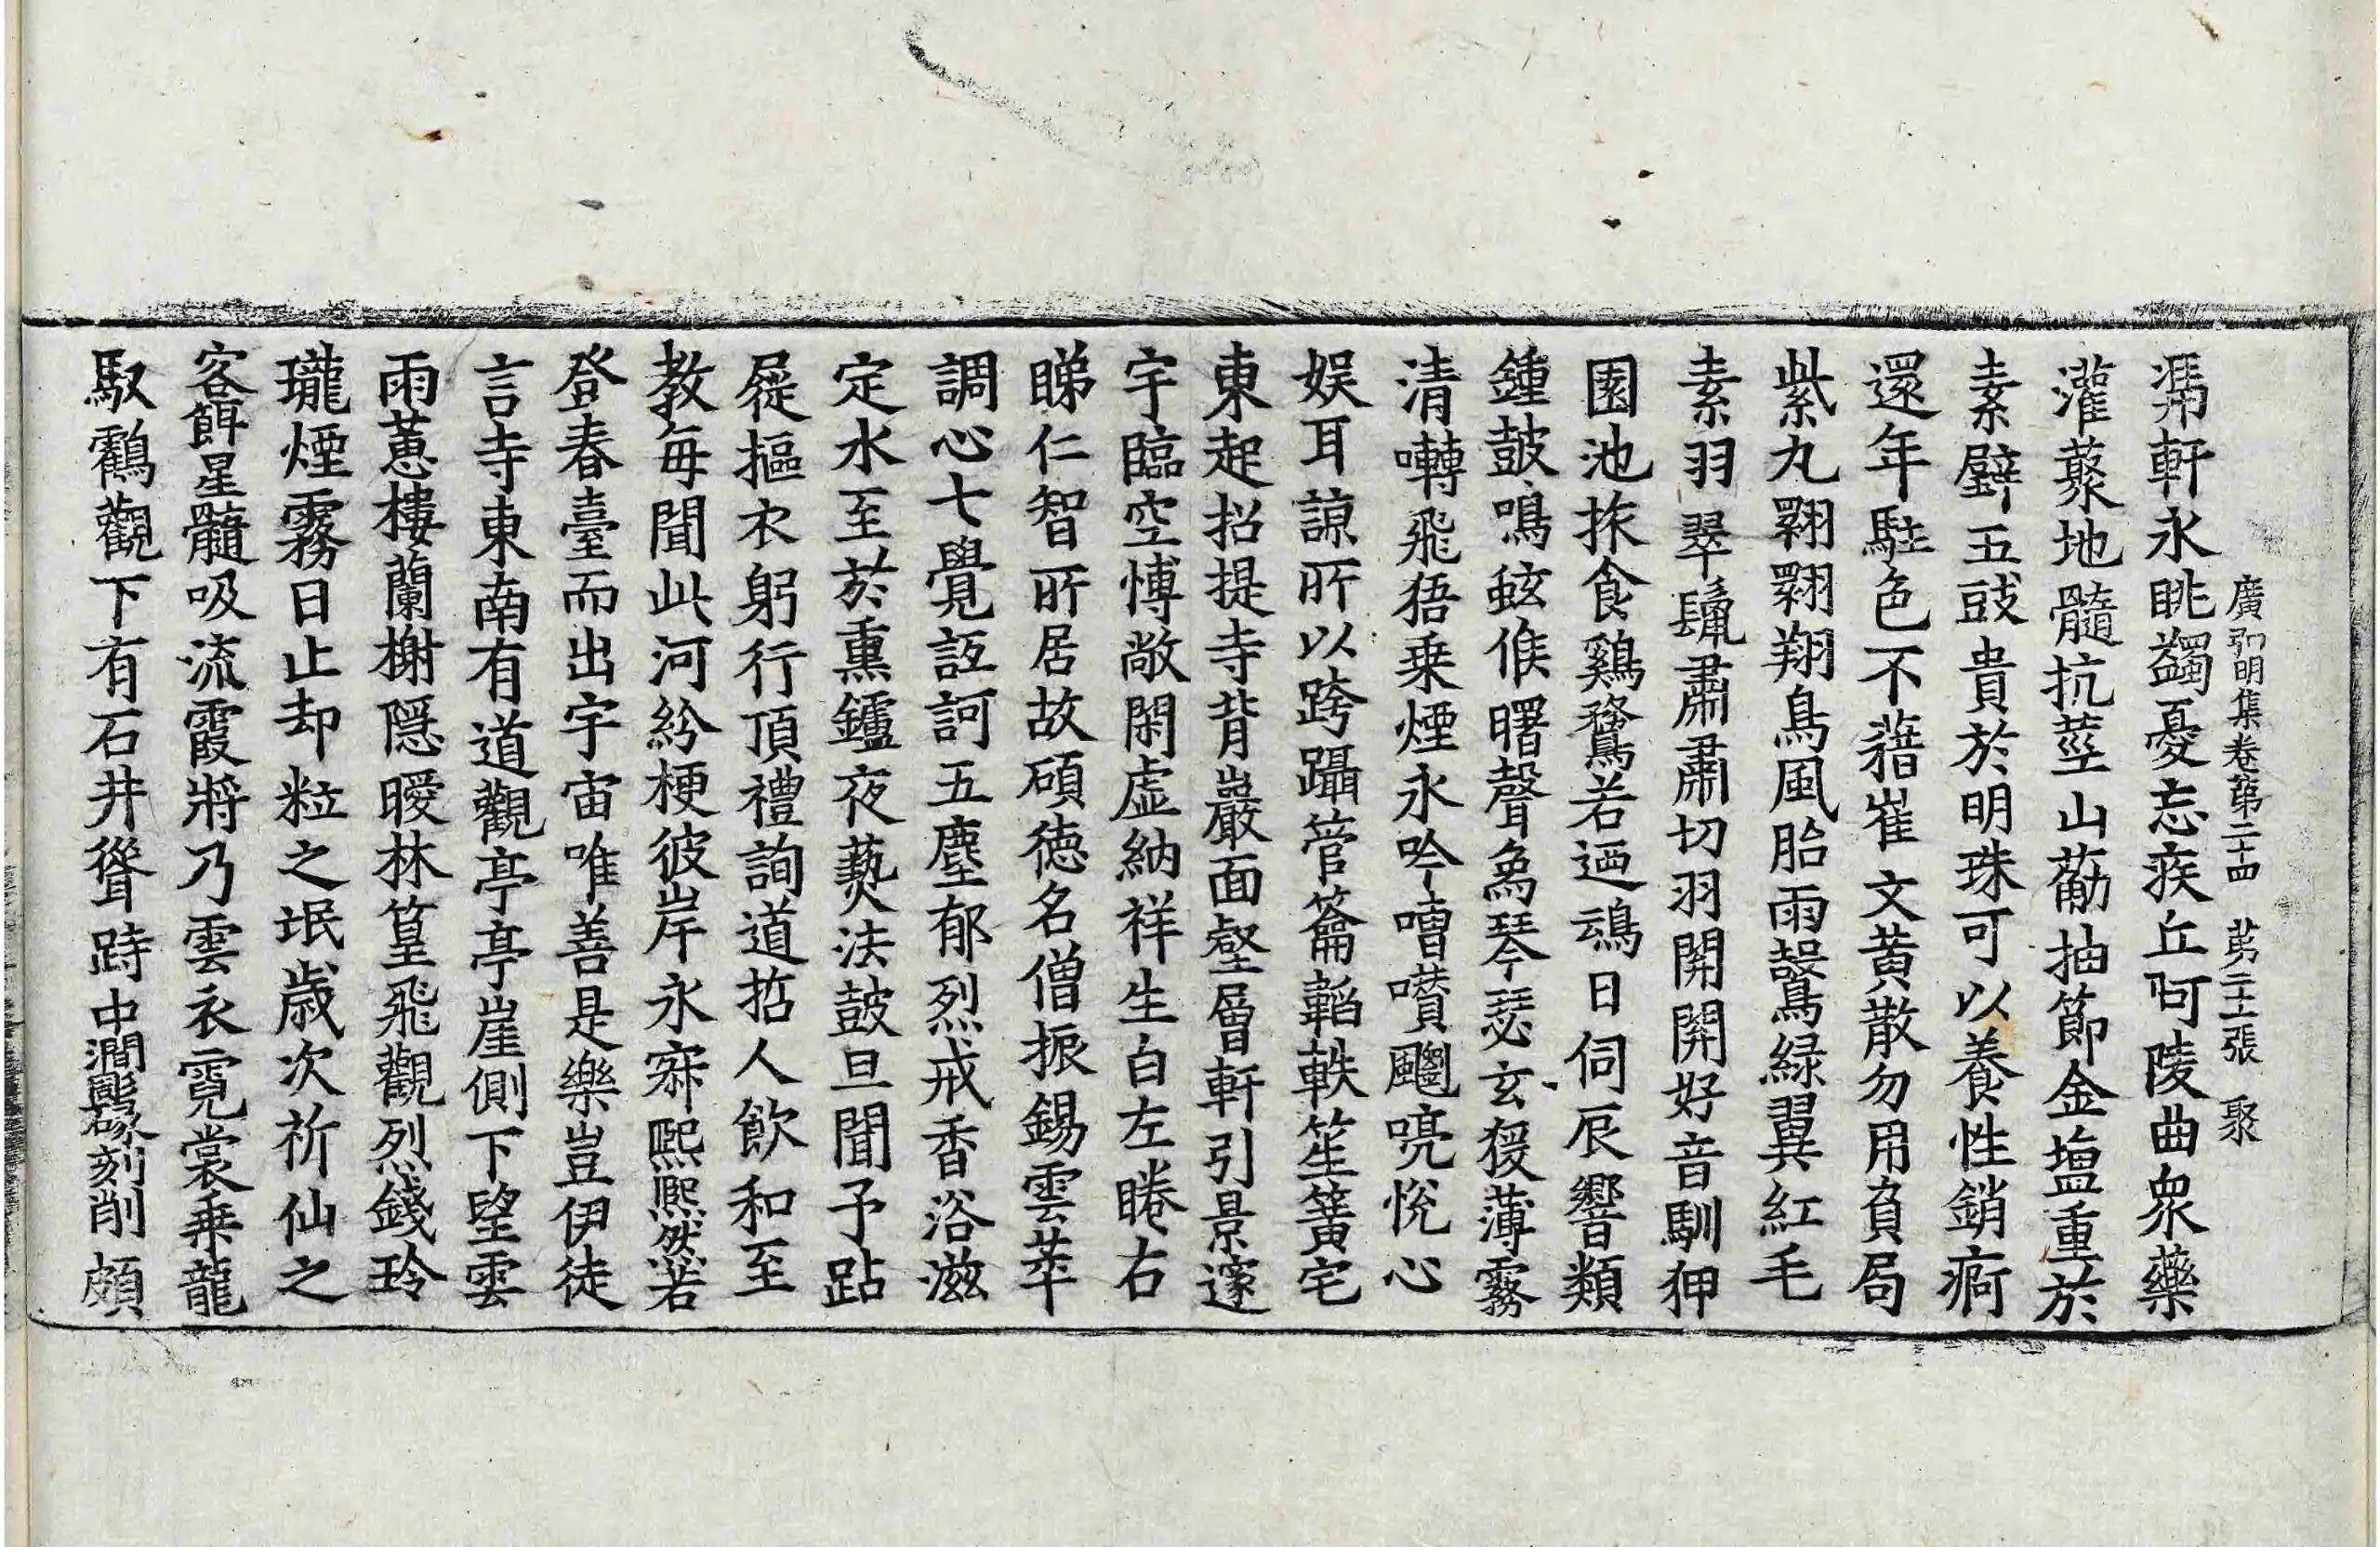 廣弘明集卷第二十四　苐二十二張　聚
馮軒永眺蠲憂忘疾丘阿陵曲衆藥
灌藂地髓抗莖山葝抽節金塩重於
素璧五豉貴於明珠可以養性銷痾
還年駐色不藉崔文黄散勿用負局
紫丸翾翾翔鳥風胎雨鷇緑翼紅毛
素羽翠鬛肅肅切羽関関好音馴狎
園池捄食鷄鶩若迺鴆日伺辰響類
鍾鼓鳴蚿候曙聲象琴瑟玄猨薄霧
清囀飛狧乗煙永吟嘈囋飀喨悅心
娱耳諒所以跨躡管籥韜軼笙簧宅
東起招提寺背巖面壑層軒引景邃
宇臨空愽敞閑虚納祥生白左睠右
睇仁智所居故碩徳名僧振錫雲萃
調心七覺詆訶五塵郁烈戒香浴滋
定水至於熏鑪夜爇法鼓旦聞予跕
屣摳衣躬行頂禮詢道哲人飲和至
教毎聞此河紛梗彼岸永寂熙熙然若
登春臺而出宇宙唯善是樂豈伊徒
言寺東南有道觀亭亭崖側下望雲
雨蕙樓蘭榭隱曖林篁飛觀烈錢玲
瓏煙霧日止却粒之氓歳次祈仙之
客餌星髓吸流霞將乃雲衣霓裳乗龍
馭鸖觀下有石井聳跱中澗彫琢刻削頗